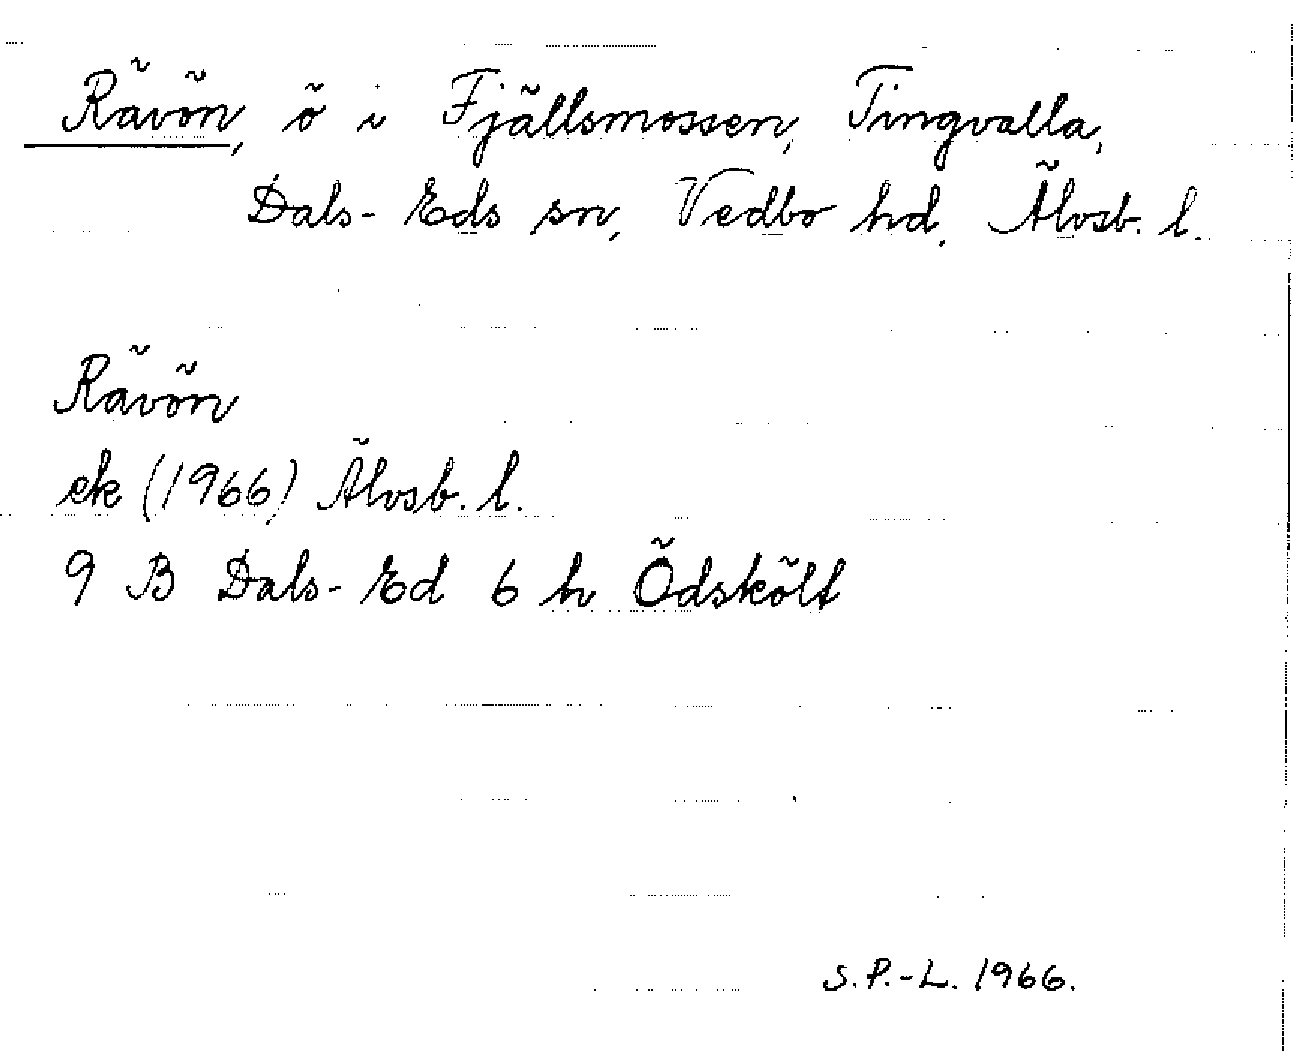 Rävön, ö i Fjällsmossen, Tingvalla,
Dals-Eds sn, Vedbo hd, Älvsb. l.
Rävön
ek (1966) Älvsb. l.
9 B Dals-Ed 6 h Ödskölt
S.P.-L. 1966.